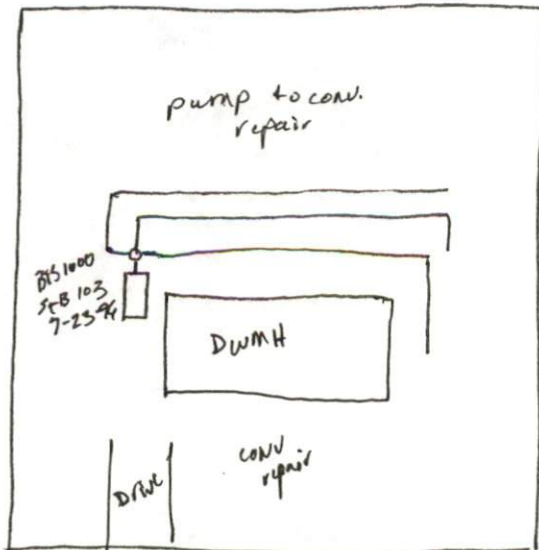 pump to conv.
repair
BTS 1000
STB 103
7-23-96
DWMH
Drive
conv
repair